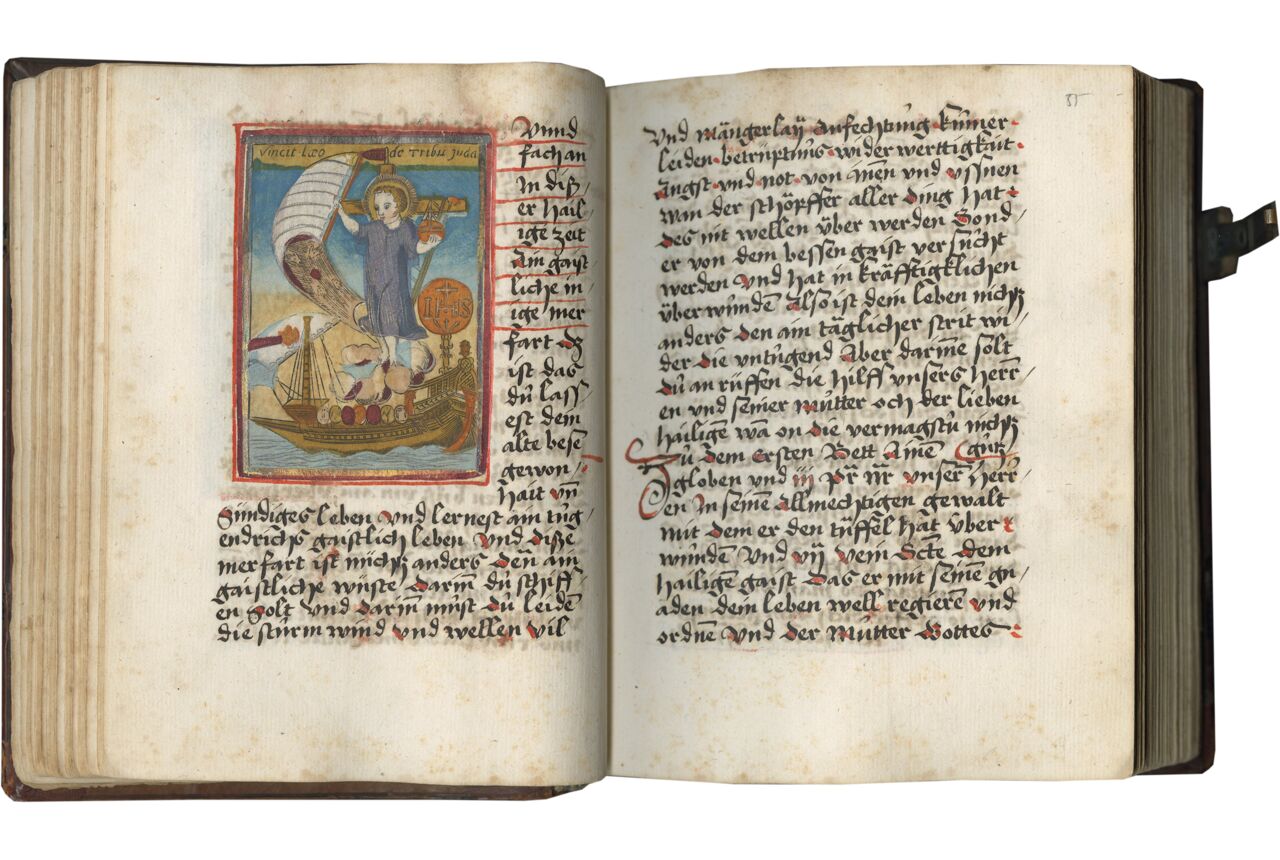 vincit Leo de Tribu Juda
IHS
Vnnd
fach an
In diß/
er hail/
ige zeit
Ain gaist
liche in/
ige mer
fart dz
ist das
dů lass/
est dein
alte bese
gewon/
hait vn̄
Sündiges leben vnd lernest ain tůg/
endrichs gaistlich leben Vnd diße
merfart ist nüchz anders den̄ ain
gaistliche wüste Darin̄ dů schiff/
en solt Vnd darin̄ můst dů leidē
die stürm wind vnd wellen vil
35
Vnd mängerlaÿ Anfechtung kümer
leiden betrüptnůs wider werttigkait
Angst vnd not von Inen vnd vssnen
wan der schöpffer aller ding hat
des nit wellen über werden Sond/
er von dem bessen gaist versůcht
werden Vnd hat in kräfftigklichen
überwůndē Also ist dem leben nichz
anders den ain täglicher strit wi/
der die vntůgend Aber darin̄e solt
dů an rüffen die hilff vnsers herr/
en vnd seiner Můtter och der lieben
hailigē wā on die vermagstů nichz
Zů dem ersten Bett Amē
globen vnd iij pr nr vnser herr/
en In seinē Allmechtigen gewalt
mit dem er den tüffel hat über
wůndē Vnd vij vem Scte dem
hailigē gaist Das er mit seinē gn/
aden dein leben well regierē vnd
ordnē Vnd der Můtter Gottes